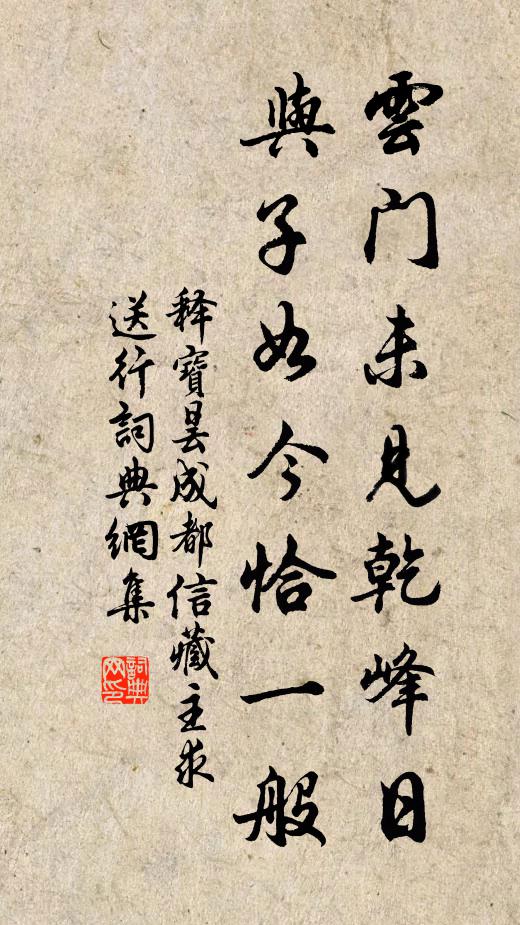 雲门未見乾峰日
與子如今恰一般
释寶昙成都信藏主求
送行詞典網集
詞典网印